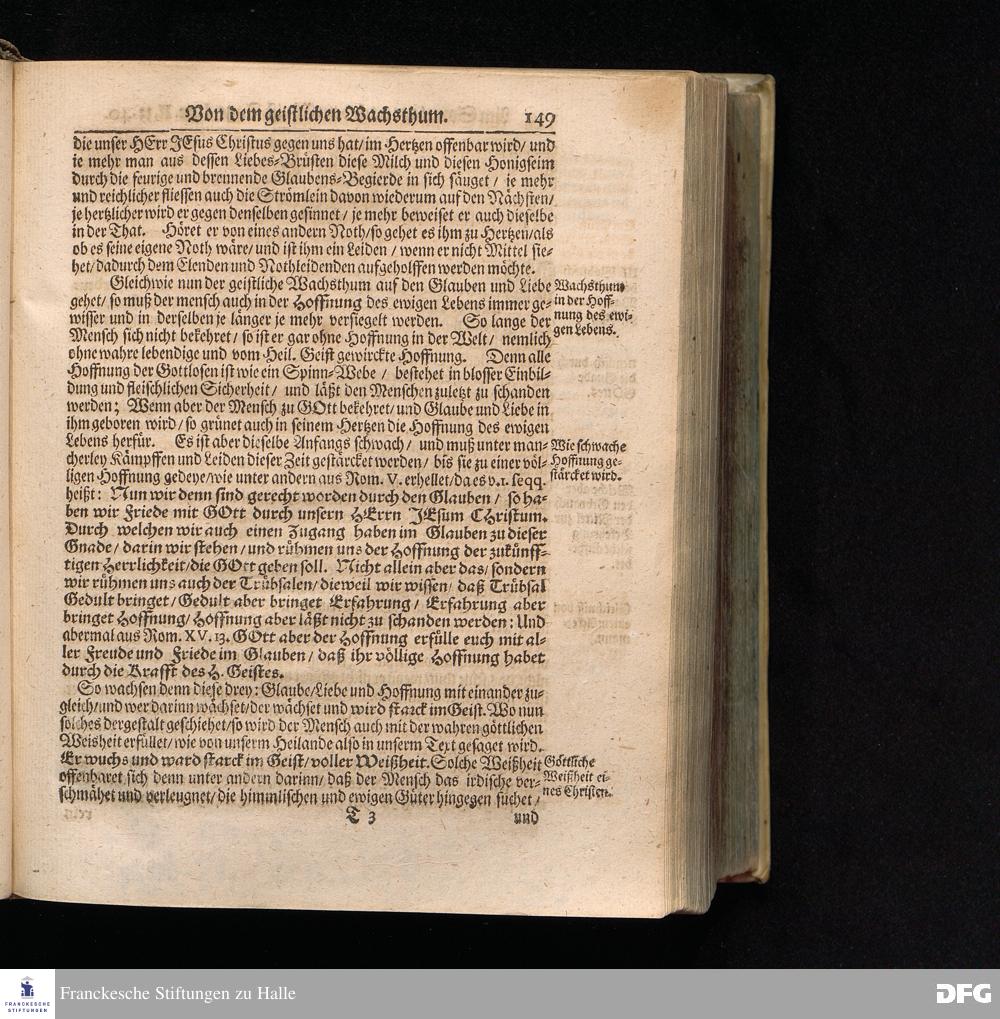 Von dem geistlichen Wachsthum. 149
die unser HErr JEsus Christus gegen uns hat/ im Hertzen offenbar wird/ und
ie mehr man aus dessen Liebes-Brüsten diese Milch und diesen Honigseim
durch die feurige und brennende Glaubens-Begierde in sich säuget/ je mehr
und reichlicher fliessen auch die Strömlein davon wiederum auf den Nächsten/
je hertzlicher wird er gegen denselben gesinnet/ je mehr beweiset er auch dieselbe
in der That. Höret er von eines andern Noth/ so gehet es ihm zu Hertzen/ als
ob es seine eigene Noth wäre/ und ist ihm ein Leiden/ wenn er nicht Mittel sie-
het/ dadurch dem Elenden und Nothleidenden aufgeholffen werden möchte.
Gleichwie nun der geistliche Wachsthum auf den Glauben und Liebe
gehet/ so muß der mensch auch in der Hoffnung des ewigen Lebens immer ge-
wisser und in derselben je länger je mehr versiegelt werden. So lange der
Mensch sich nicht bekehret/ so ist er gar ohne Hoffnung in der Welt/ nemlich
ohne wahre lebendige und vom Heil. Geist gewirckte Hoffnung. Denn alle
Hoffnung der Gottlosen ist wie ein Spinn-Webe/ bestehet in blosser Einbil-
dung und fleischlichen Sicherheit/ und läßt den Menschen zuletzt zu schanden
werden; Wenn aber der Mensch zu GOtt bekehret/ und Glaube und Liebe in
ihm geboren wird/ so grünet auch in seinem Hertzen die Hoffnung des ewigen
Lebens herfür. Es ist aber dieselbe Anfangs schwach/ und muß unter man-
cherley Kämpffen und Leiden dieser Zeit gestärcket werden/ bis sie zu einer völ-
ligen Hoffnung gedeye/ wie unter andern aus Rom. V. erhellet/ da es v.1. seqq.
heißt: Nun wir denn sind gerecht worden durch den Glauben/ so ha-
ben wir Friede mit GOtt durch unsern HErrn JEsum CHristum.
Durch welchen wir auch einen Zugang haben im Glauben zu dieser
Gnade/ darin wir stehen/ und rühmen uns der Hoffnung der zukünff-
tigen Herrlichkeit/ die GOtt geben soll. Nicht allein aber das/ sondern
wir rühmen uns auch der Trübsalen/ dieweil wir wissen/ daß Trübsal
Gedult bringet/ Gedult aber bringet Erfahrung/ Erfahrung aber
bringet Hoffnung/ Hoffnung aber läßt nicht zu schanden werden: Und
abermal aus Rom. XV. 13. GOtt aber der Hoffnung erfülle euch mit al-
ler Freude und Friede im Glauben/ daß ihr völlige Hoffnung habet
durch die Krafft des H. Geistes.
So wachsen denn diese drey: Glaube/ Liebe und Hoffnung mit einander zu-
gleich/ und wer darinn wächset/ der wächset und wird starck im Geist. Wo nun
solches dergestalt geschiehet/ so wird der Mensch auch mit der wahren göttlichen
Weisheit erfüllet/ wie von unserm Heilande also in unserm Text gesaget wird.
Er wuchs und ward starck im Geist/ voller Weißheit. Solche Weißheit
offenbaret sich denn unter andern darinn/ daß der Mensch das irdische ver-
schmähet und verleugnet/ die himmlischen und ewigen Güter hingegen suchet/
T 3 und
Wachsthum
in der Hoff-
nung des ewi-
gen Lebens.
Wie schwache
Hoffnung ge-
stärcket wird.
Göttliche
Weißheit ei-
nes Christen.
FRANCKESCHE
STIFTUNGEN
Franckesche Stiftungen zu Halle
DFG